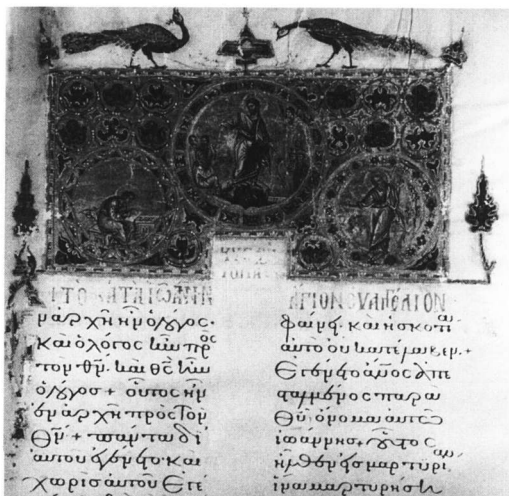 ΤΟ ΚΑΤΑ ΙΩΑΝΝ
ν ἀρχῆ ἦν ὁ λόγος·
καὶ ὁ λόγος ἦν πρὸς
τὸν θν̅· καὶ θς̅ ἦν
ὁ λόγος + οὗτος ἦν
ἐν ἀρχῆ πρὸς τὸν
θν̅ + πάντα δι
αὐτοῦ ἐγένετο· καὶ
χωρὶς αὐτοῦ ἐγέ
ΑΓΙΟΝ ΕΥΑΓΓΕΛΙΟΝ
φαίνει· καὶ ἡ σκοτία
αὐτὸ οὐ κατέλαβεν +
Ἐγένετο ἄνος ἀπε
σταλμένος παρὰ
θυ̅ ὄνομα αὐτῶ
ἰωάννης + οὗτος
ἦλθεν εἰς μαρτυρίαν
ἵνα μαρτυρήση